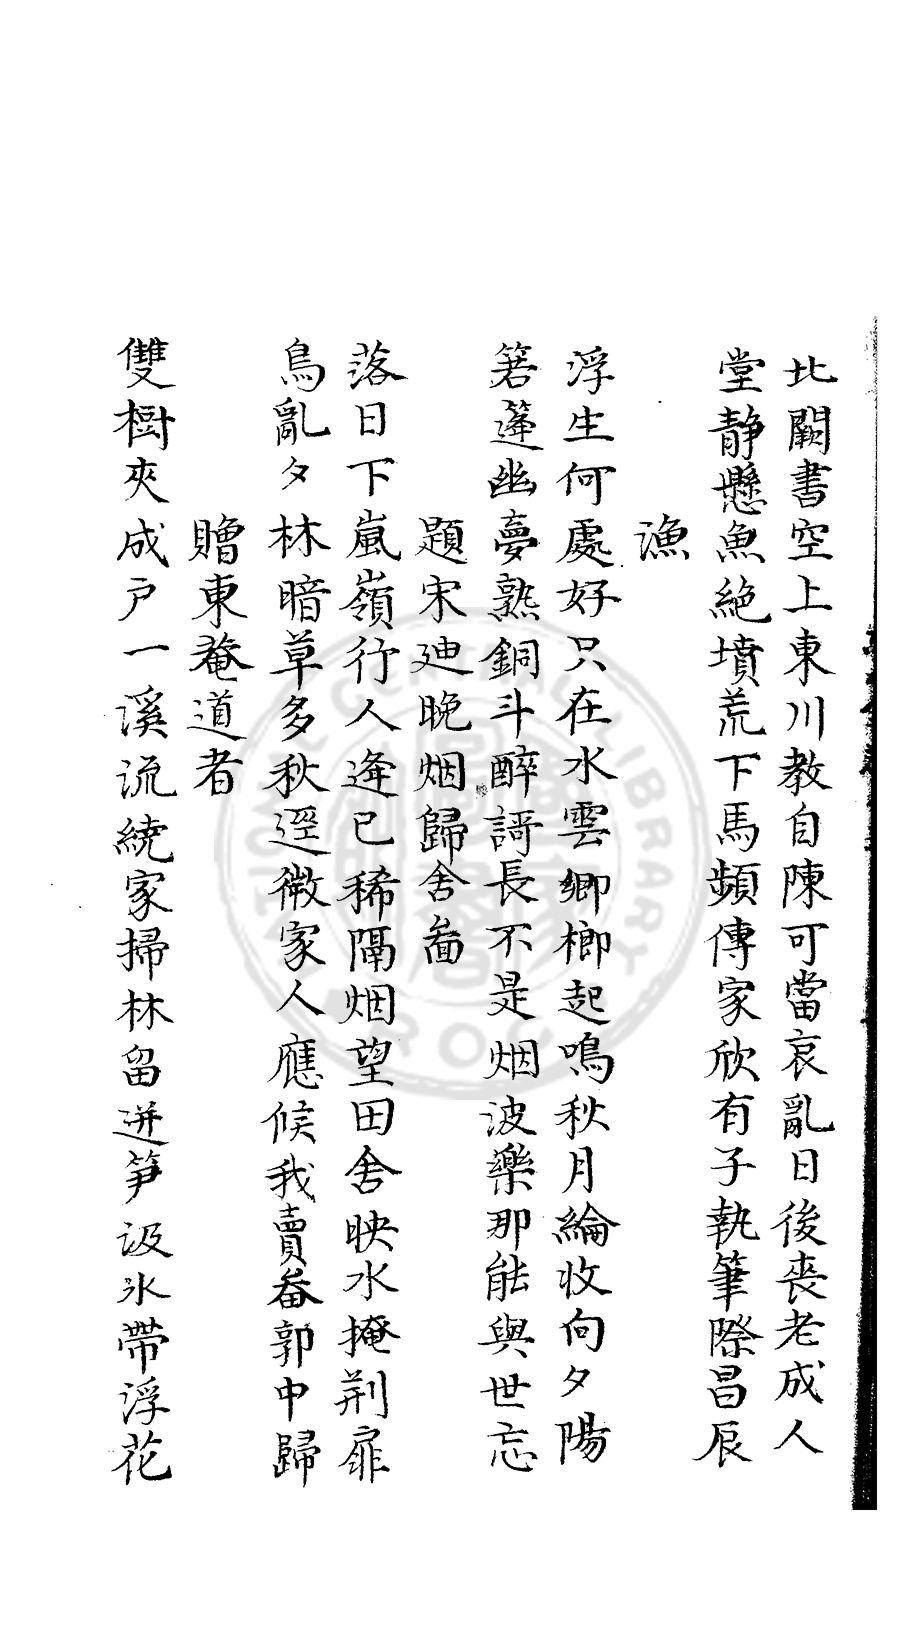 北闕書空上東川教自陳可當哀亂日後喪老成人
堂靜懸魚絶墳荒下馬頻傳家欣有子執筆際昌辰
漁
浮生何處好只在水雲鄉榔起鳴秋月綸收向夕陽
箬篷幽夢熟銅斗醉謌長不是烟波樂那能與世忘
題宋迪晚烟歸舍啚
落日下嵐嶺行人逢已稀隔烟望田舍映水掩荆扉
鳥亂夕林暗草多秋逕微家人應候我賣畚郭中歸
贈東菴道者
雙樹夾成戶一溪流繞家掃林留迸笋汲氷帶浮花
NATIONAL CENTRAL LIBRARY